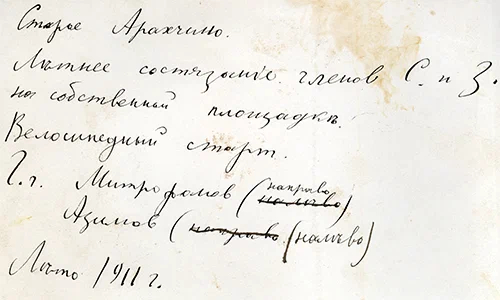 Старое Аракчино.
Лѣтнее состязаніе членов С. и З.
на собственной площадкѣ.
Велосипедный старт.
Г.г. Митрофанов (направо налѣво)
Азимов (направо (налѣво)
Лѣто 1911 г.